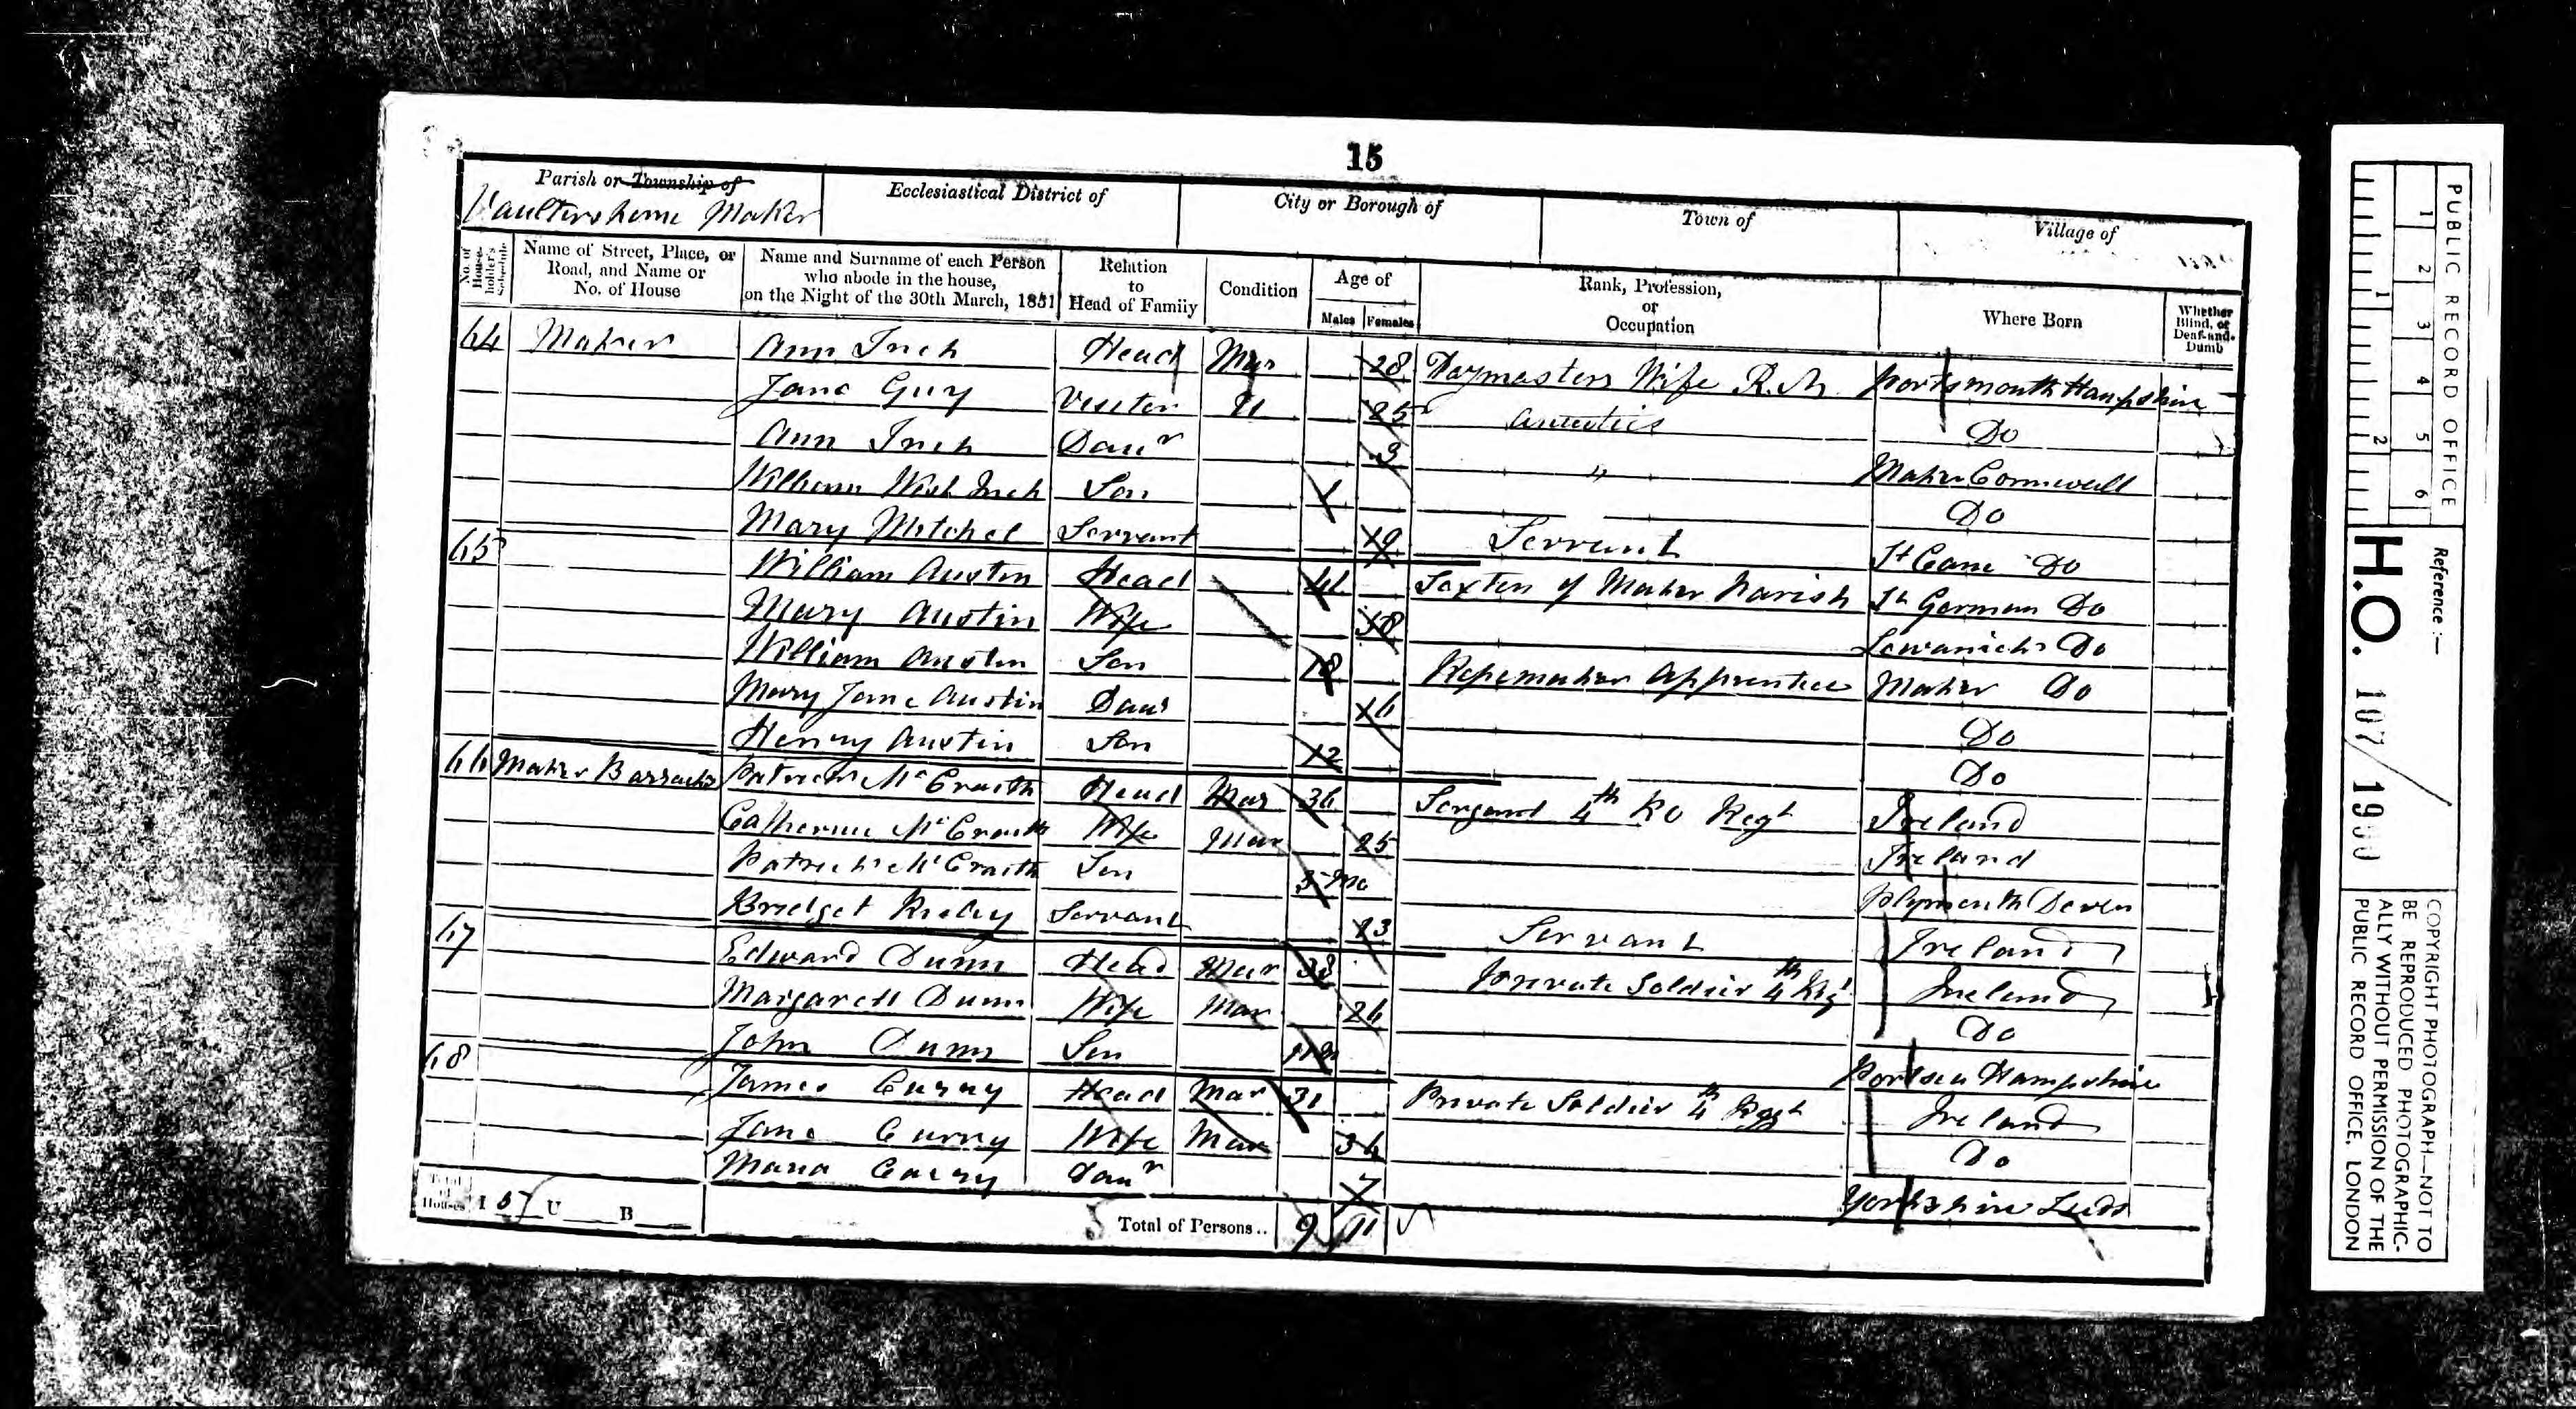 15
Parish or Township of
Vaultershome Maker
Ecclesiastical District of
City or Borough of
Town of
Village of
No. of House-holder's Schedule
Name of Street, Place, or Road, and Name or No. of House
Name and Surname of each Person who abode in the house, on the Night of the 30th March, 1851
Relation to Head of Family
Condition
Age of
Males Females
Rank, Profession, or Occupation
Where Born
Whether Blind, or Deaf-and-Dumb
64 Maker Ann Inch Head Mar 28 Paymasters Wife R.N. Portsmouth Hampshire
Jane Guy Visitor U 25 Do
Ann Inch Daur 3 " Maker Cornwall
William Inch Son 1 Do
Mary Mitchel Servant 19 Servant Do
65 William Austin Head 41 Sexton of Maker Parish St German Do
Mary Austin Wife 38 Do
William Austin Son 18 Ropemaker Apprentice Maker Do
Mary Jane Austin Daur 16 Do
Henry Austin Son 12 Do
66 Maker Barracks Patrick McCraith Head Mar 36 Sergant 4th KO Regt Ireland
Catherine McCraith Wife Mar 25 Ireland
Patrick McCraith Son 5 Mo Plymouth Devon
Bridget Servant 23 Servant Ireland
67 Edward Dunn Head Mar 38 Private Soldier 4th Regt Ireland
Margarett Dunn Wife Mar 26 Do
John Dunn Son Portsea Hampshire
68 James Curry Head Mar 31 Private Soldier 4th Regt Ireland
Jane Curry Wife Mar 36 Do
Maria Curry Daur 7 Yorkshire Leeds
Total of Houses I 5 U B
Total of Persons.. 9 11
PUBLIC RECORD OFFICE
1 2 3 4 5 6
1 2
Reference :—
H.O. 107/1900
COPYRIGHT PHOTOGRAPH—NOT TO
BE REPRODUCED PHOTOGRAPHIC-
ALLY WITHOUT PERMISSION OF THE
PUBLIC RECORD OFFICE, LONDON